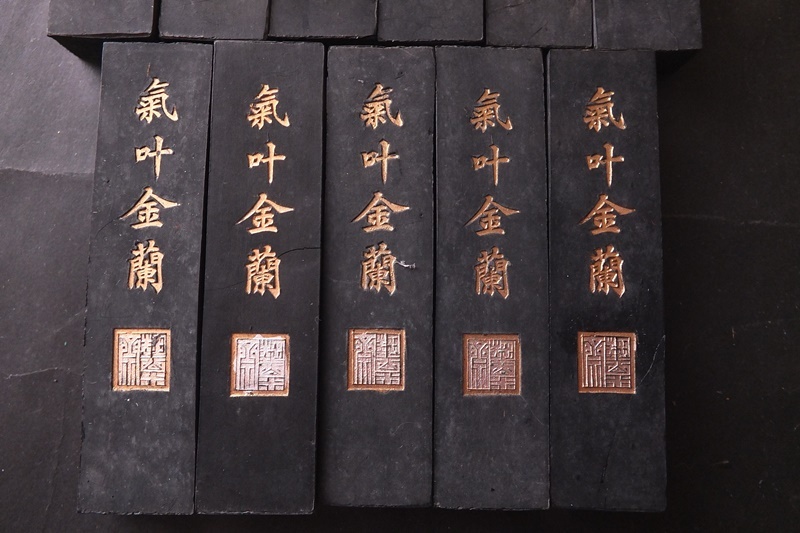 氣叶金蘭
氣叶金蘭
氣叶金蘭
氣叶金蘭
氣叶金蘭